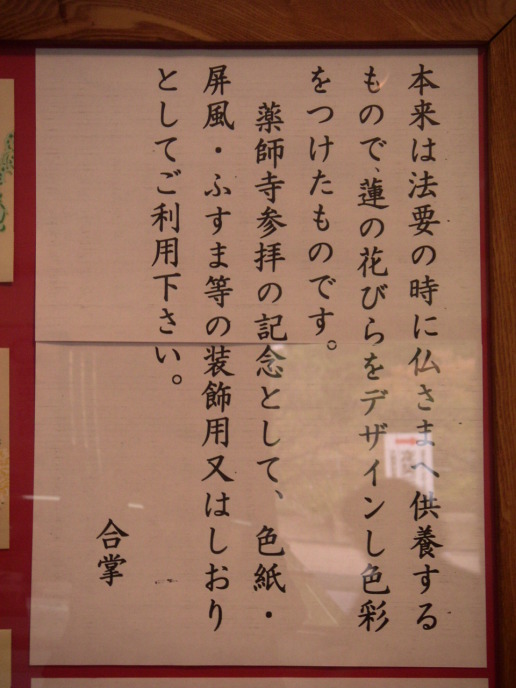 本来は法要の時に仏さまへ供養する
もので、蓮の花びらをデザインし色彩
をつけたものです。
薬師寺参拝の記念として、色紙・
屏風・ふすま等の装飾用又はしおり
としてご利用下さい。
合掌